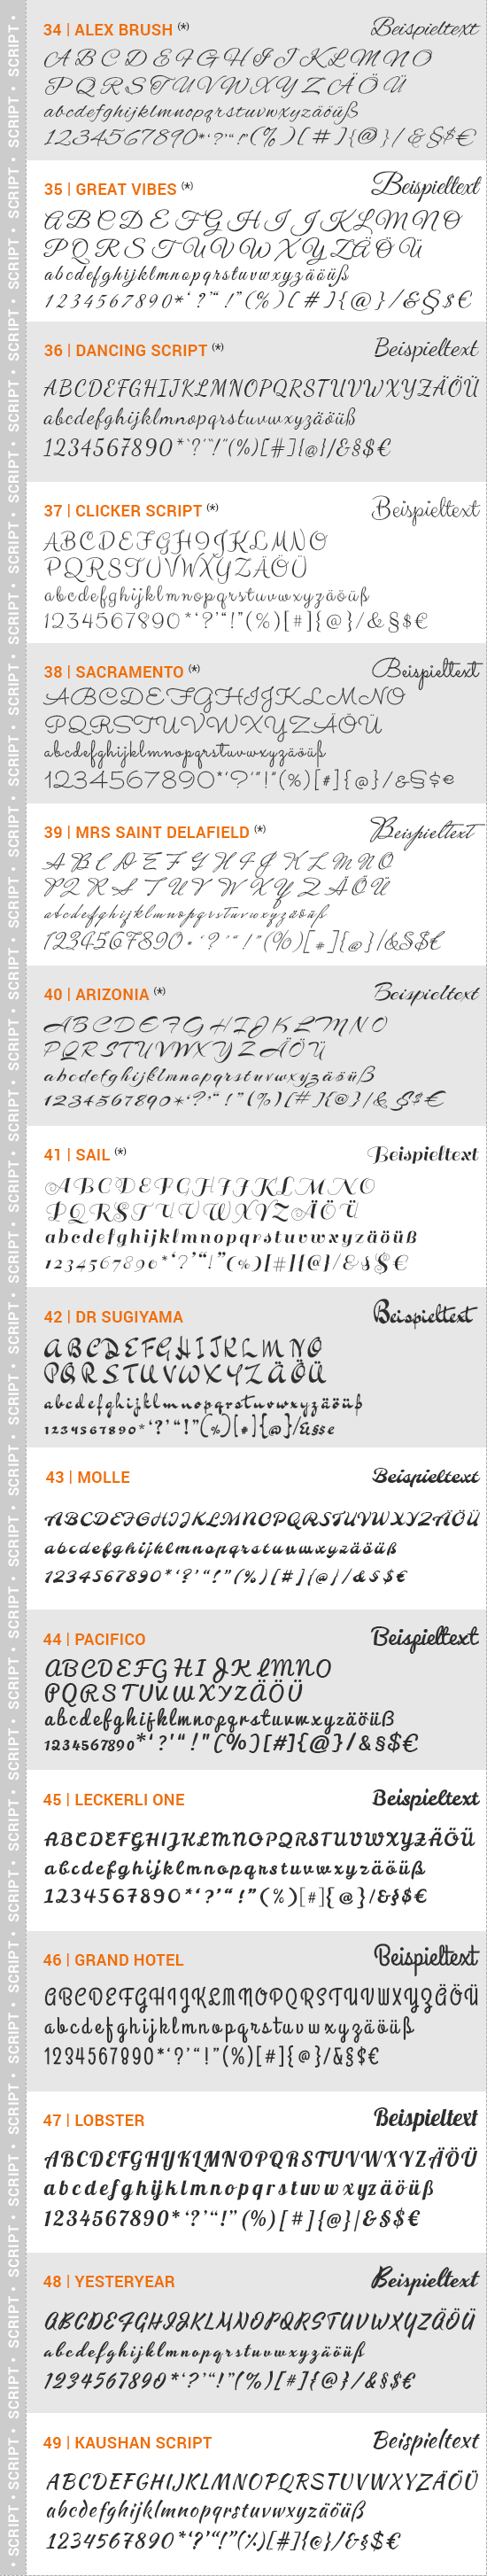 34 | ALEX BRUSH (*) Beispieltext
ABCDEFGHIJKLMNO
PQRSTUVWXYZÄÖÜ
abcdefghijklmnopqrstuvwxyzäöüß
1234567890*‘?’“!”(%)[#]{@}/&§$€
35 | GREAT VIBES (*) Beispieltext
ABCDEFGHIJKLMNO
PQRSTUVWXYZÄÖÜ
abcdefghijklmnopqrstuvwxyzäöüß
1234567890*‘?’“!”(%)[#]{@}/&§$€
36 | DANCING SCRIPT (*) Beispieltext
ABCDEFGHIJKLMNOPQRSTUVWXYZÄÖÜ
abcdefghijklmnopqrstuvwxyzäöüß
1234567890*‘?’“!”(%)[#]{@}/&§$€
37 | CLICKER SCRIPT (*) Beispieltext
ABCDEFGHIJKLMNO
PQRSTUVWXYZÄÖÜ
abcdefghijklmnopqrstuvwxyzäöüß
1234567890*‘?’“!”(%)[#]{@}/&§$€
38 | SACRAMENTO (*) Beispieltext
ABCDEFGHIJKLMNO
PQRSTUVWXYZÄÖÜ
abcdefghijklmnopqrstuvwxyzäöüß
1234567890*‘?’“!”(%)[#]{@}/&§$€
39 | MRS SAINT DELAFIELD (*) Beispieltext
ABCDEFGHIJKLMNO
PQRSTUVWXYZÄÖÜ
abcdefghijklmnopqrstuvwxyzäöüß
1234567890*‘?’“!”(%)[#]{@}/&§$€
40 | ARIZONIA (*) Beispieltext
ABCDEFGHIJKLMNO
PQRSTUVWXYZÄÖÜ
abcdefghijklmnopqrstuvwxyzäöüß
1234567890*‘?’“!”(%)[#]{@}/&§$€
41 | SAIL (*) Beispieltext
ABCDEFGHIJKLMNO
PQRSTUVWXYZÄÖÜ
abcdefghijklmnopqrstuvwxyzäöüß
1234567890*‘?’“!”(%)[#]{@}/&§$€
42 | DR SUGIYAMA Beispieltext
ABCDEFGHIJKLMNO
PQRSTUVWXYZÄÖÜ
abcdefghijklmnopqrstuvwxyzäöüß
1234567890*‘?’“!”(%)[#]{@}/&§$€
43 | MOLLE Beispieltext
ABCDEFGHIJKLMNOPQRSTUVWXYZÄÖÜ
abcdefghijklmnopqrstuvwxyzäöüß
1234567890*‘?’“!”(%)[#]{@}/&§$€
44 | PACIFICO Beispieltext
ABCDEFGHIJKLMNO
PQRSTUVWXYZÄÖÜ
abcdefghijklmnopqrstuvwxyzäöüß
1234567890*‘?’“!”(%)[#]{@}/&§$€
45 | LECKERLI ONE Beispieltext
ABCDEFGHIJKLMNOPQRSTUVWXYZÄÖÜ
abcdefghijklmnopqrstuvwxyzäöüß
1234567890*‘?’“!”(%)[#]{@}/&§$€
46 | GRAND HOTEL Beispieltext
ABCDEFGHIJKLMNOPQRSTUVWXYZÄÖÜ
abcdefghijklmnopqrstuvwxyzäöüß
1234567890*‘?’“!”(%)[#]{@}/&§$€
47 | LOBSTER Beispieltext
ABCDEFGHIJKLMNOPQRSTUVWXYZÄÖÜ
abcdefghijklmnopqrstuvwxyzäöüß
1234567890*‘?’“!”(%)[#]{@}|&§$€
48 | YESTERYEAR Beispieltext
ABCDEFGHIJKLMNOPQRSTUVWXYZÄÖÜ
abcdefghijklmnopqrstuvwxyzäöüß
1234567890*‘?’“!”(%)[#]{@}/&§$€
49 | KAUSHAN SCRIPT Beispieltext
ABCDEFGHIJKLMNOPQRSTUVWXYZÄÖÜ
abcdefghijklmnopqrstuvwxyzäöüß
1234567890*‘?’“!”(%)[#]{@}/&§$€
SCRIPT • SCRIPT • SCRIPT • SCRIPT • SCRIPT • SCRIPT • SCRIPT • SCRIPT • SCRIPT • SCRIPT • SCRIPT • SCRIPT • SCRIPT • SCRIPT • SCRIPT • SCRIPT • SCRIPT • SCRIPT • SCRIPT • SCRIPT • SCRIPT • SCRIPT • SCRIPT • SCRIPT • SCRIPT • SCRIPT • SCRIPT • SCRIPT • SCRIPT • SCRIPT • SCRIPT • SCRIPT • SCRIPT • SCRIPT • SCRIPT • SCRIPT •